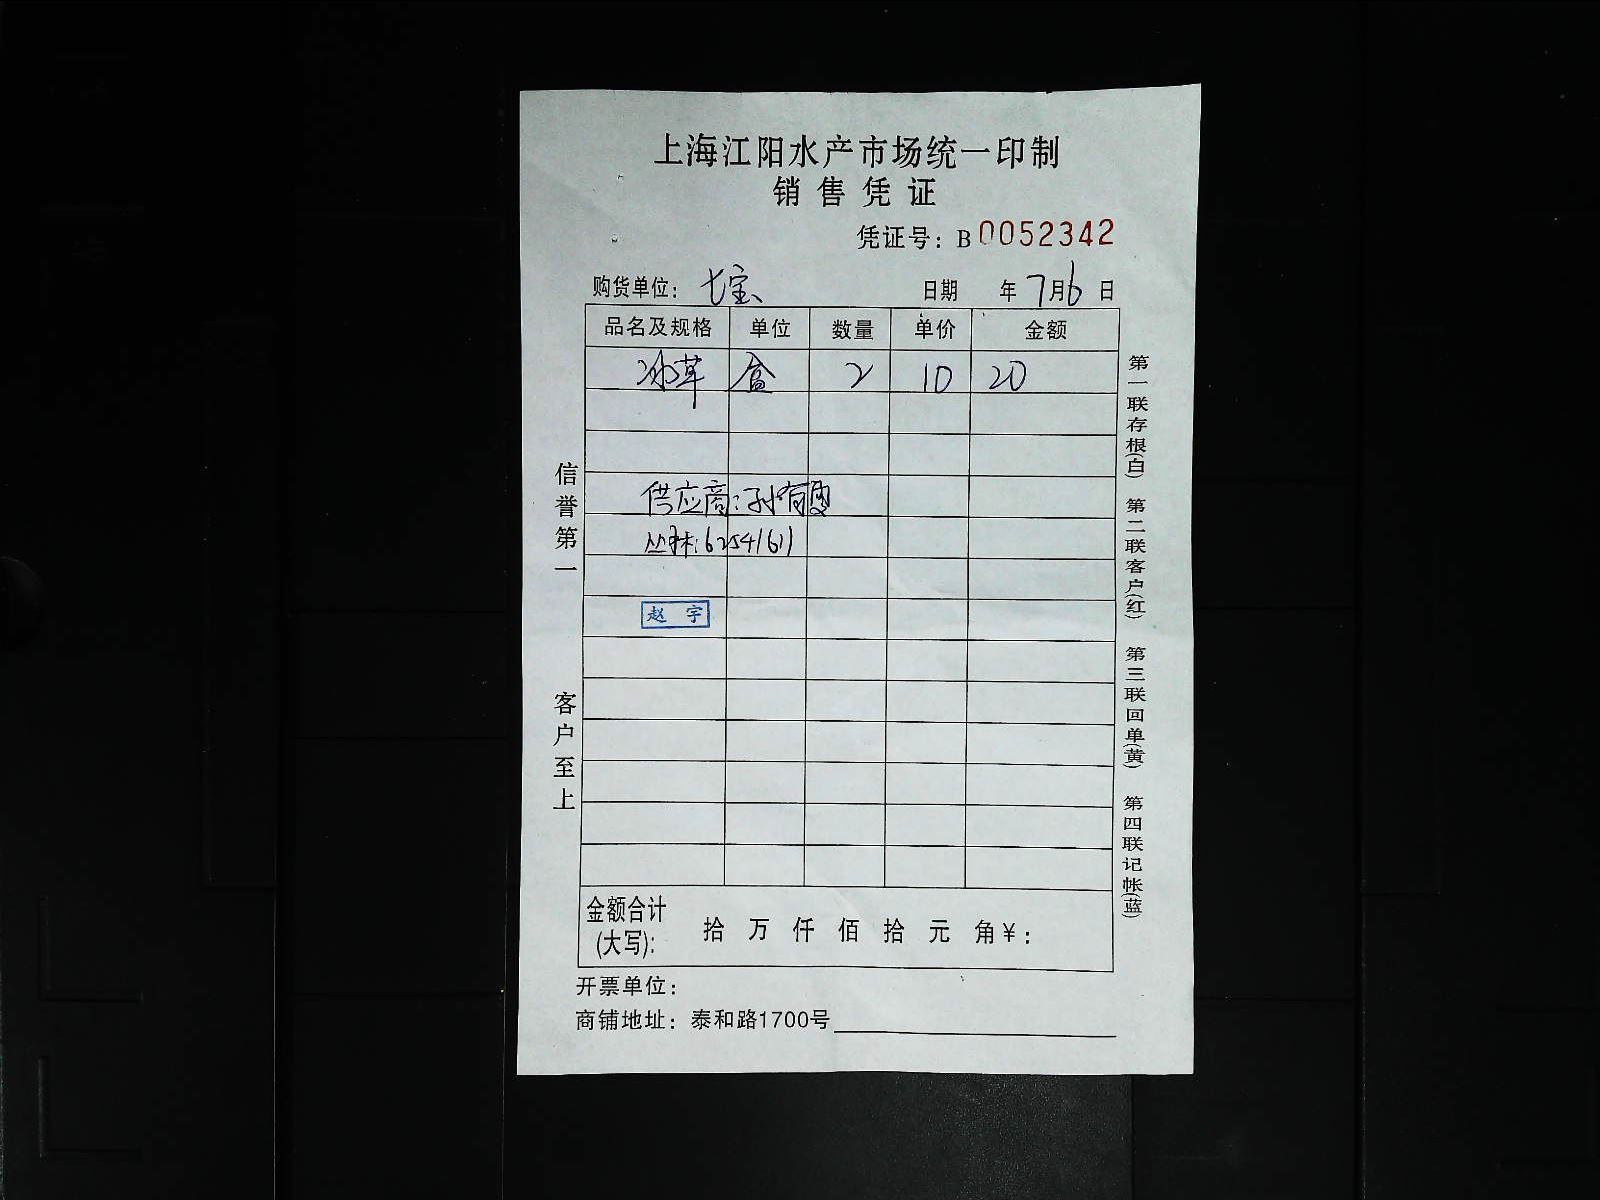 上海江阳水产市场统一印制
销售凭证
凭证号：B0052342
购货单位：七宝 日期 年7月6日
品名及规格 单位 数量 单价 金额
冰草 盒 2 10 20
供应商：孙有
丛林：62541611
赵宇
金额合计(大写)： 拾 万 仟 佰 拾 元 角¥：
开票单位：
商铺地址：泰和路1700号
信誉第一
客户至上
第一联存根(白) 第二联客户(红) 第三联回单(黄) 第四联记帐(蓝)